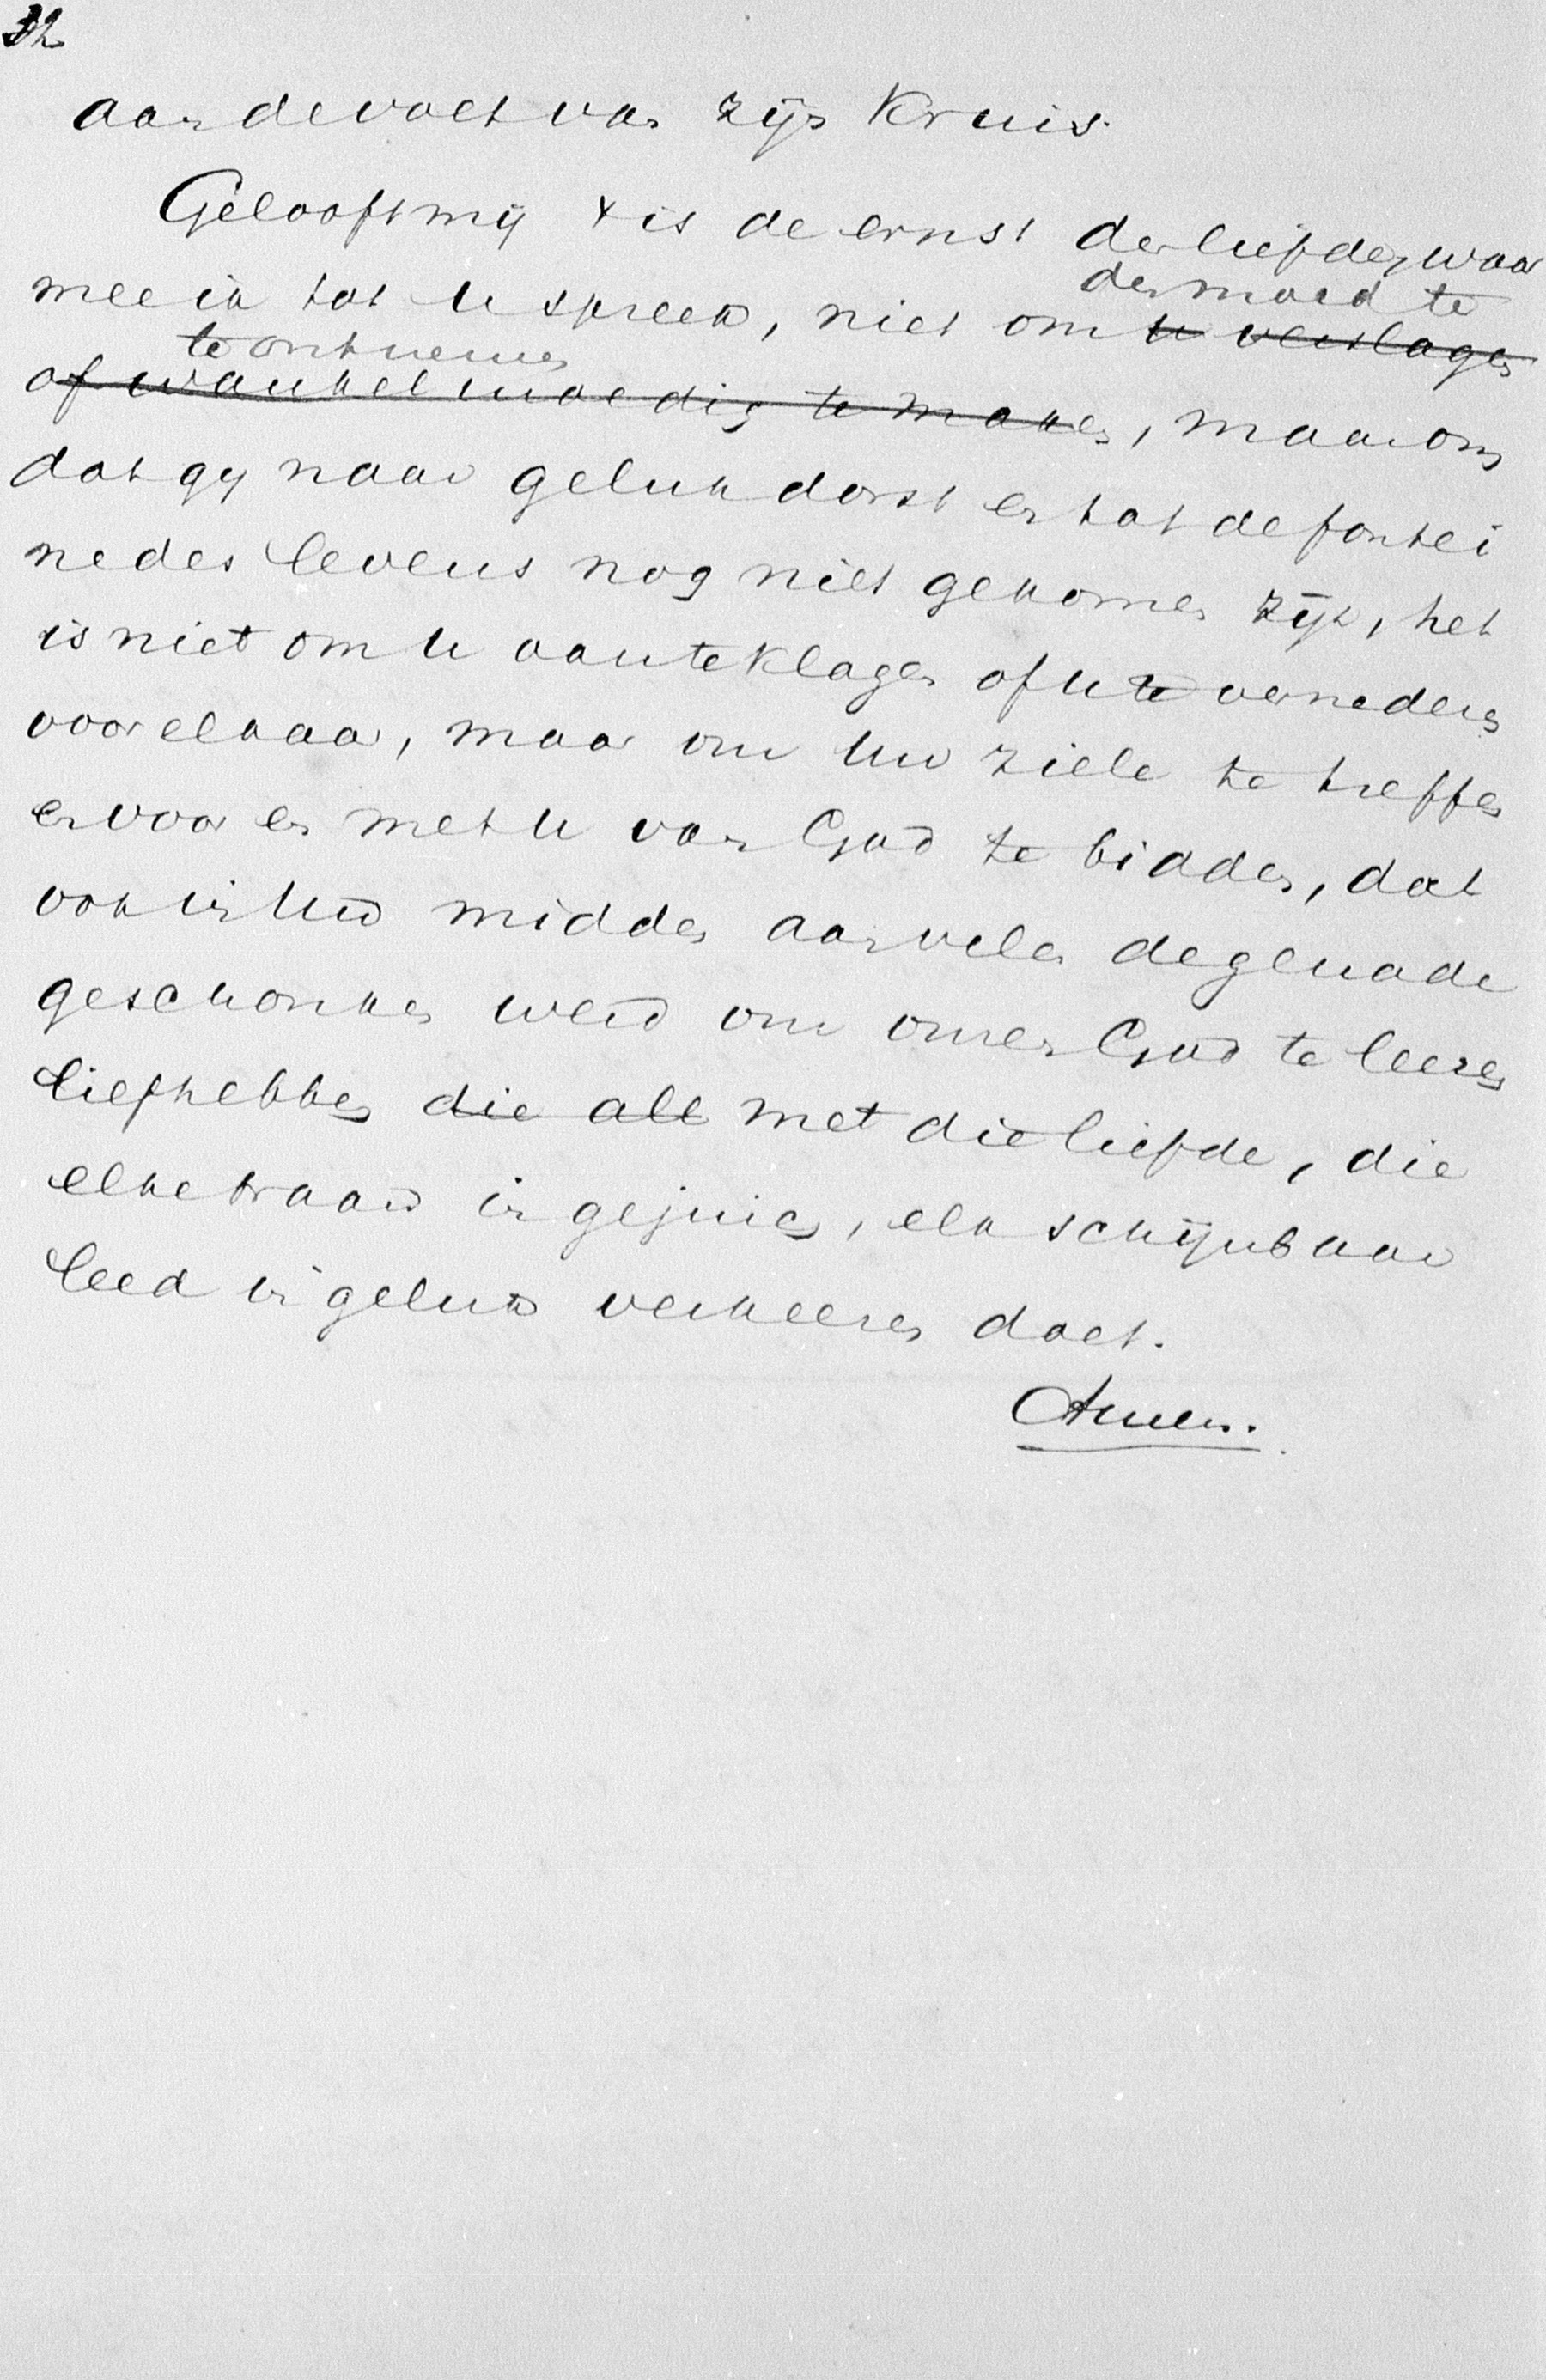 32
aan de voet van zijn Kruis.
Gelooft mij 't is de ernst der liefde, waar
den moed te
mee ik tot U spreek, niet om U verslagen
te ontnemen
of wankelmoedig te maken, maar om
dat gij naar geluk dorst en tot de fontei
ne des levens nog niet gekomen zijt, het
is niet om U aan te klagen of U te vernederen
voor elkaar, maar om Uw ziele te treffen
en voor en met U van God te bidden, dat
ook in Uw midden aan velen de genade
geschonken werd om onzen God te leeren
liefhebben die all met die liefde, die
elke traan in gejuich, elk schijnbaar
leed in geluk verkeeren doet.
Amen.